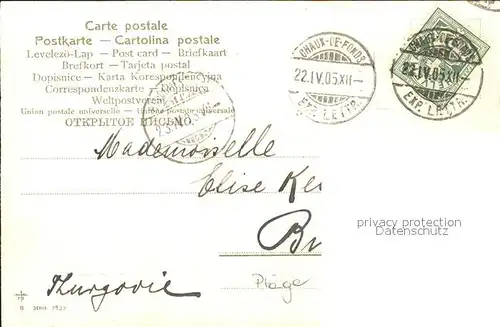 Carte postale
Postkarte — Cartolina postale
Levelezö-Lap — Post card — Briefkaart
Brefkort — Tarjeta postal
Dopisnice — Karta Korespondencyjna
Correspondenzkarte — Dopisnica
Weltpostverein
Union postale universelle — Unione postale universale
ОТКРЫТОЕ ПИСЬМО.
CHAUX-DE-FONDS
22.IV.05.XII—
EXP. LETTR.
CHAUX-DE-FONDS
22.IV.05.XII—
EXP. LETTR.
Mademoiselle
Elise Kel
privacy protection
Datenschutz
Br
Thurgovie